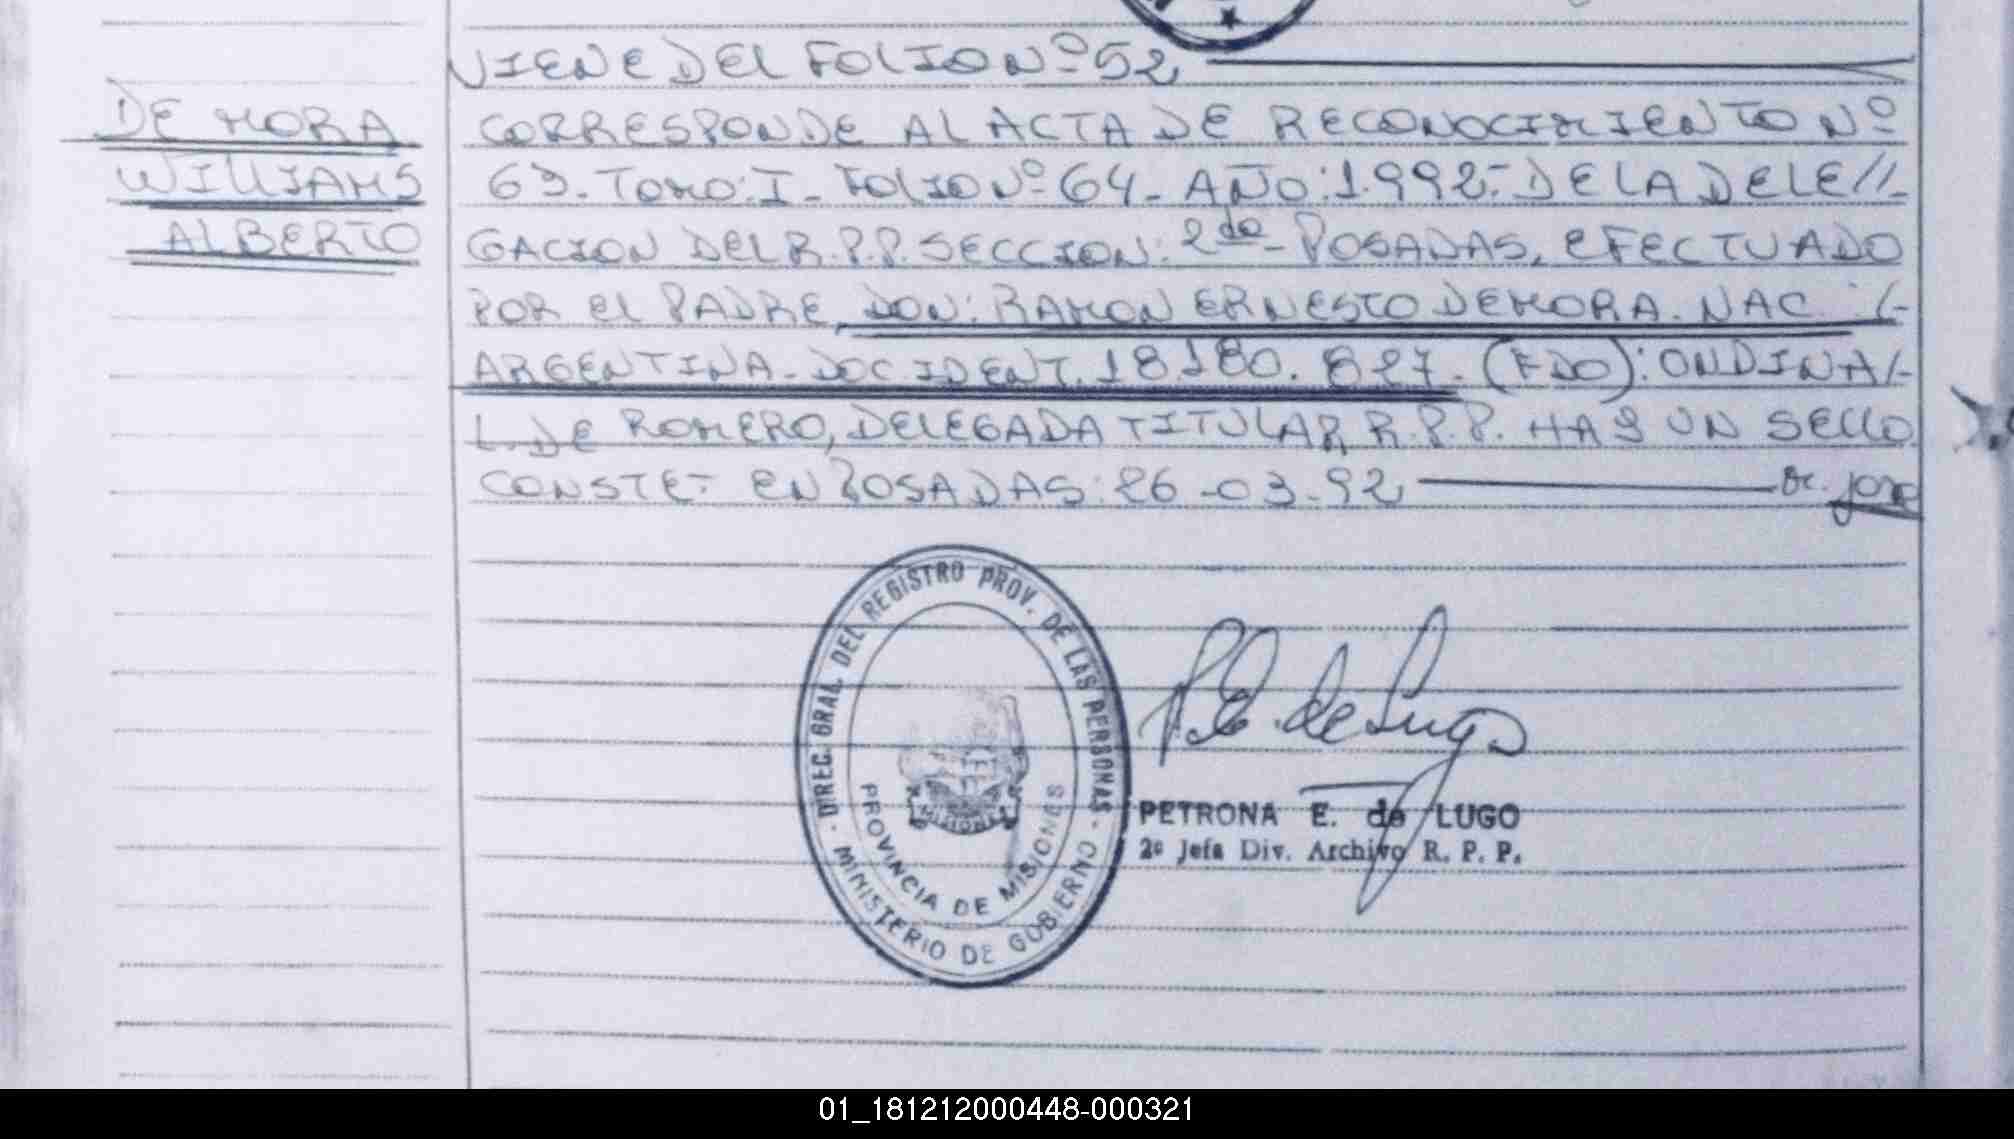 VIENE DEL FOLIO Nº 52
DE MORA
WILLIAMS
ALBERTO
CORRESPONDE AL ACTA DE RECONOCIMIENTO Nº
63. TOMO: I - FOLIO Nº 64 - AÑO: 1.992 - DE LA DELE//-
GACION DEL R.P.P. SECCION: 2da - POSADAS, EFECTUADO
POR EL PADRE, DON: RAMON ERNESTO DE MORA. NAC: /-
ARGENTINA - DOC IDENT. 18.180.827. (FDO): ONDINA/-
L. DE ROMERO, DELEGADA TITULAR R.P.P. HAY UN SELLO
CONSTE: EN POSADAS: 26-03-92
DIREC. GRAL. DEL REGISTRO PROV. DE LAS PERSONAS
MINISTERIO DE GOBIERNO
PROVINCIA DE MISIONES
MISIONES
P.E. de Lugo
PETRONA E. de LUGO
2º Jefa Div. Archivo R. P. P.
01_181212000448-000321